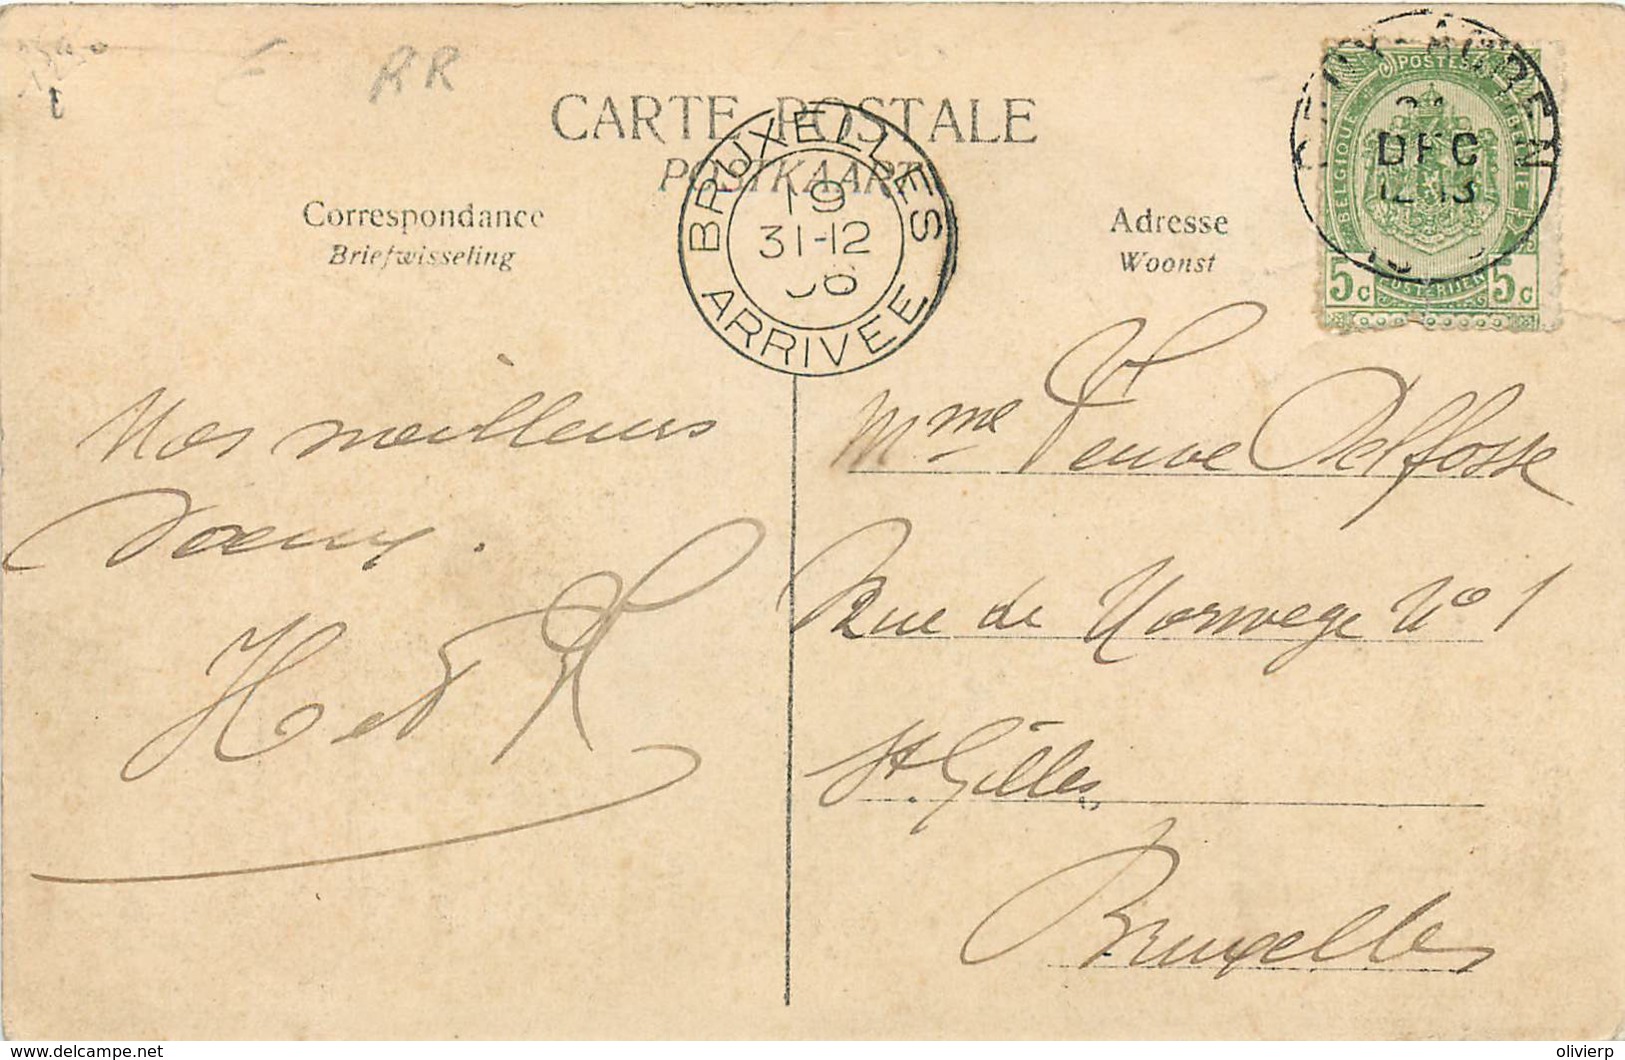 RR
CARTE POSTALE
POSTKAART
Correspondance
Briefwisseling
Adresse
Woonst
BRUXELLES
19
31-12
06
ARRIVEE
DEC
12-13
POSTES
BELGIQUE
5c 5c
Nos meilleurs
voeux.
H et
Mme Veuve Delfosse
Rue de Norwege No 1
St. Gilles
Bruxelles
delcampe.net
olivierp